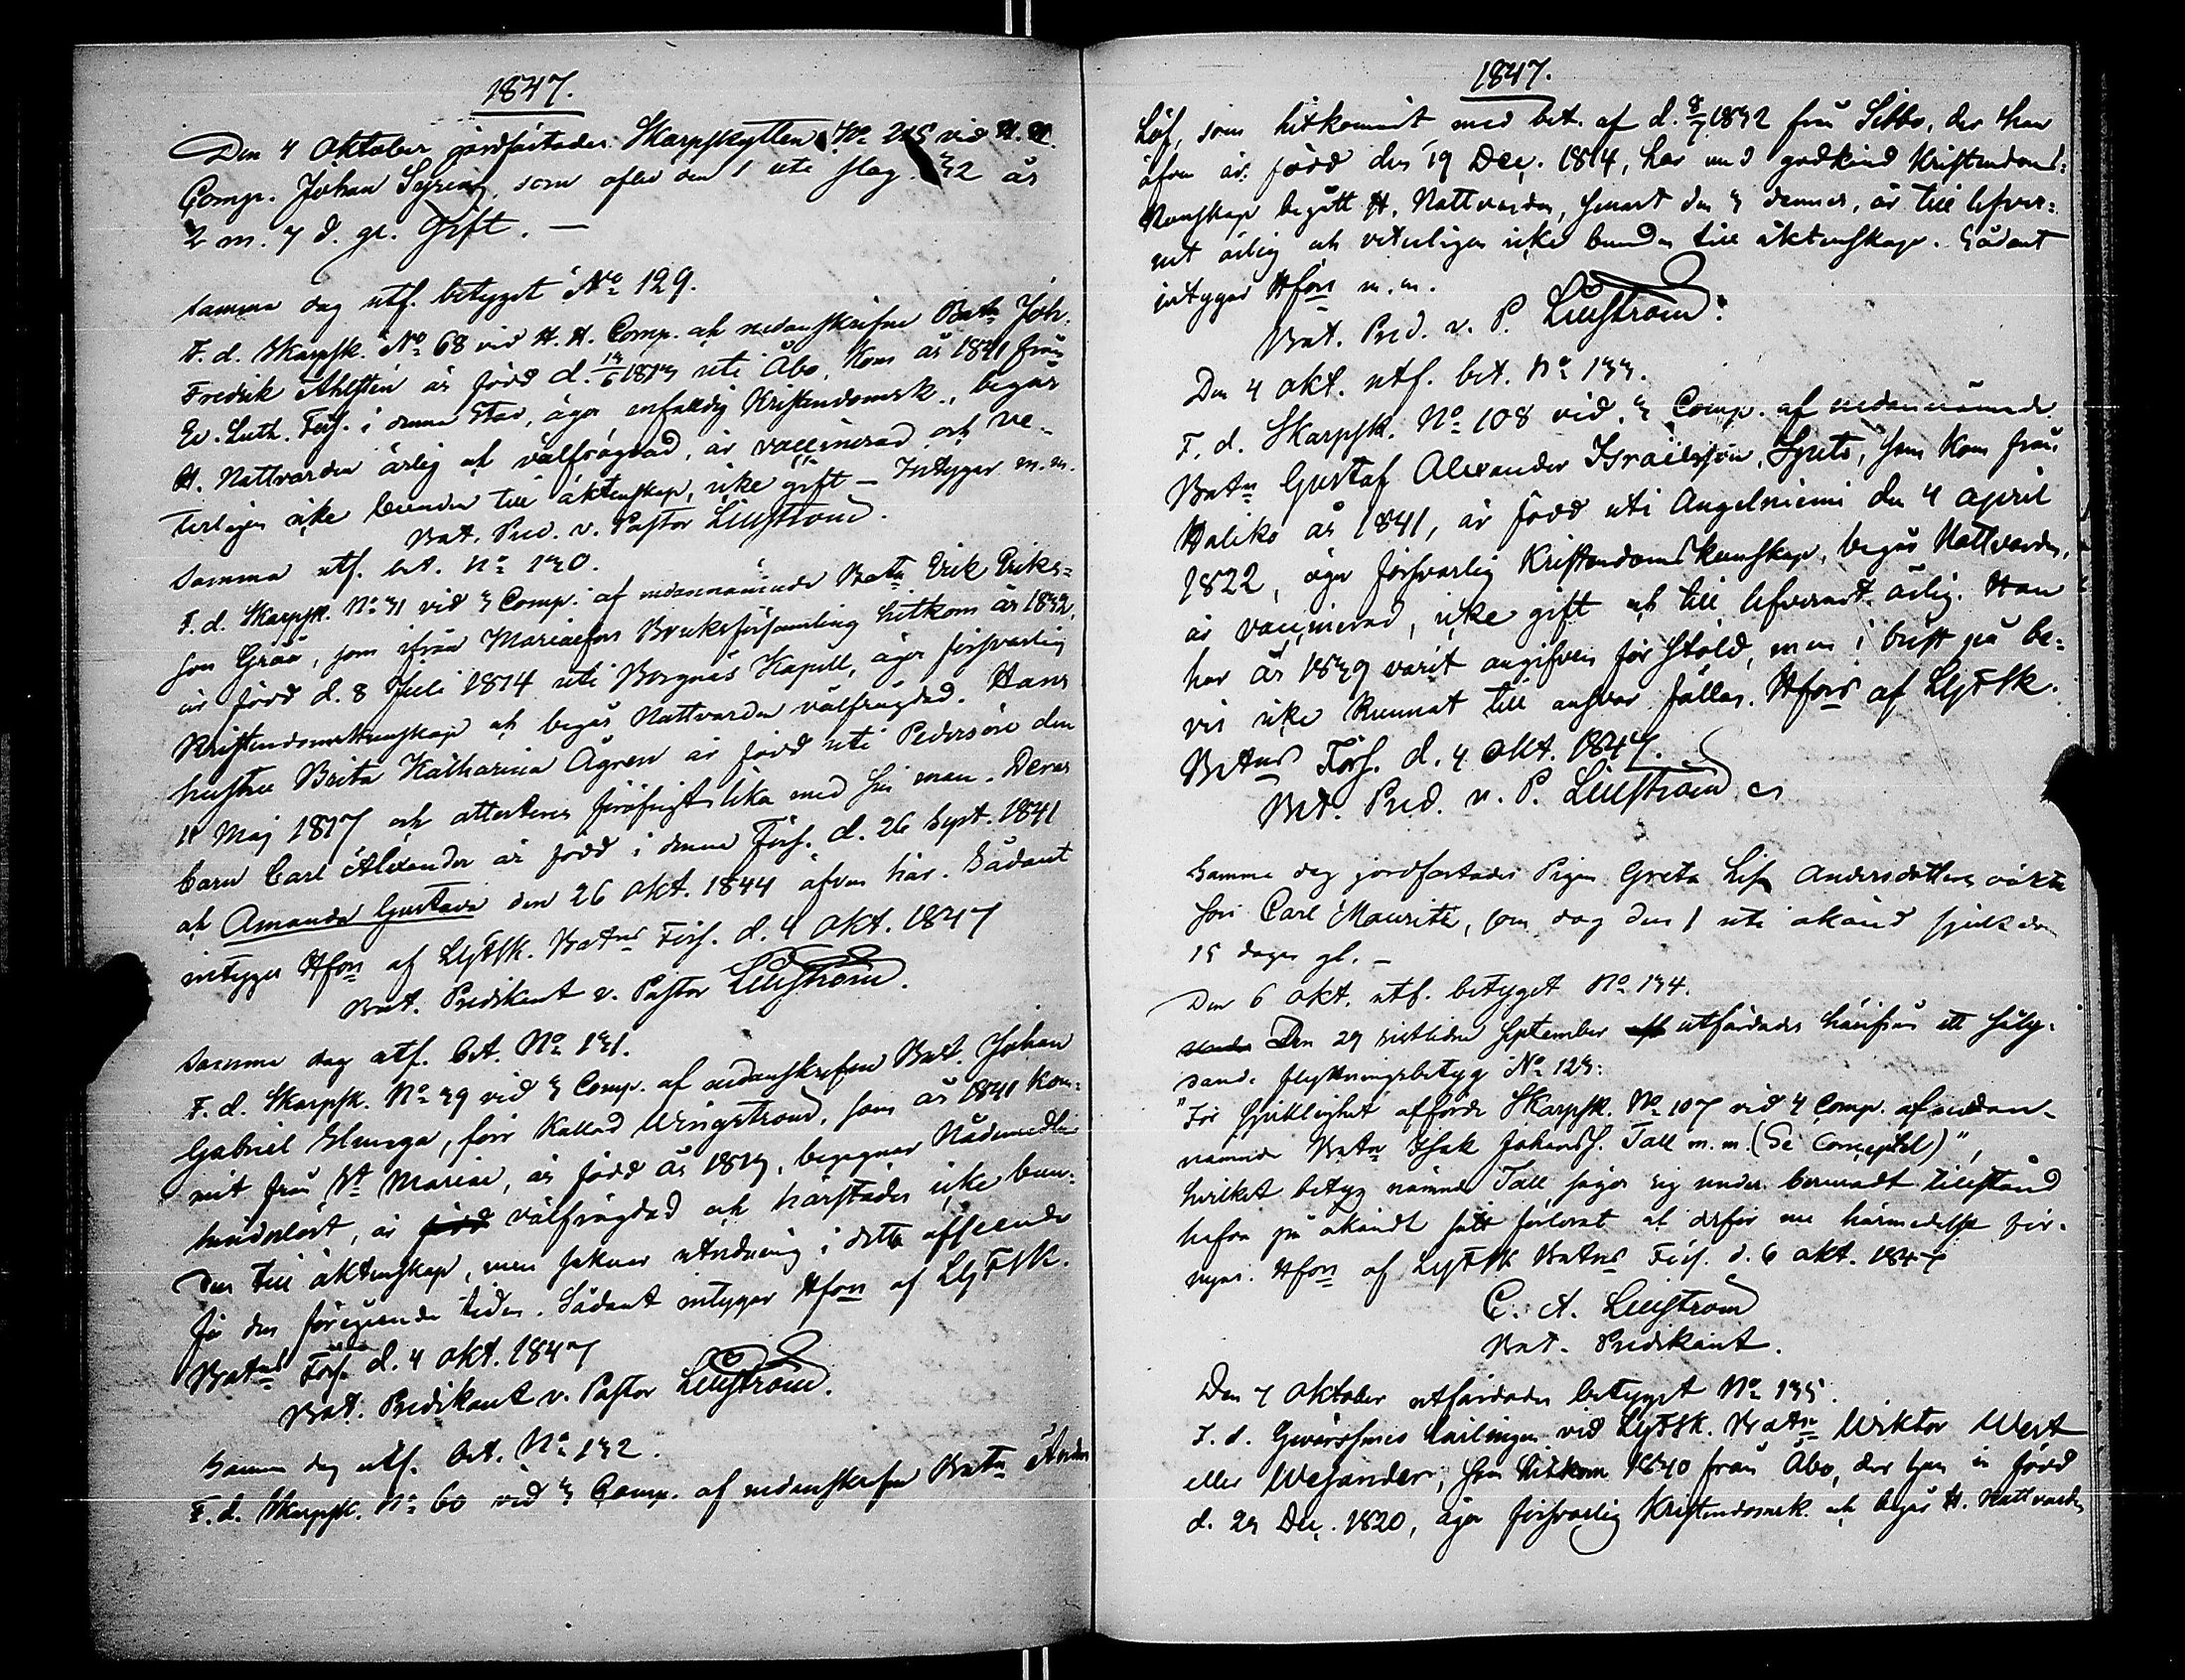 1847.
Den 4 Oktober jordfästades Skarpskytten No 215 vid H. H.
Comp. Johan Syring, som afled den 1 uti slag. 32 år
2 m. 7 d. gl. Gift. —
samma dag utf. betyget No 129.
F. d. Skarpsk. No 68 vid H. H. Comp. af nedanskrifne Batn Joh.
Fredrik Ahlstén är född d. 14/6 1813 uti Åbo, kom år 1841 från
Ev. Luth. Förs. i denna Stad, äger enfaldig Kristendomsk., begår
H. Nattvarden ärlig och välfrägdad, är vaccinerad och ve-
terligen icke bunden till äktenskap, icke gift — Intygar m. m.
Bat. Pred. v. Pastor Liliström.
Samma utf. bet. No 130.
F. d. Skarpsk. No 31 vid 3 Comp. af nedannämnde Batn Erik Eriks-
son Gråå, som ifrån Mariaefors Bruksförsamling hitkom år 1832,
är född d. 8 Juli 1814 uti Bergnäs Kapell, äger försvarlig
Kristendomskunskap och begår Nattvarden välfrägdad. Hans
hustru Brita Katharina Ågren är född uti Pedersöre den
11 Maj 1817 och attesteras föröfrigt lika med sin man. Deras
barn Carl Alexander är född i denna Förs. d. 26 Sept. 1841
och Amanda Gustava den 26 Okt. 1844 äfven här. Sådant
intygar Hfors af LgFSk. Batns Förs. d. 4 Okt. 1847
Bat. Predikant v. Pastor Liliström.
Samma dag utf. bet. No 131.
F. d. Skarpsk. No 39 vid 3 Comp. af nedanskrefne Bat. Johan
Gabriel Hunga, förr kallad Wingström, som år 1841 kom-
mit från St Mariae, är född år 1813, begagnar Nådemedlen
hinderlöst, är född välfrägdad och härstädes icke bun-
den till äktenskap, men saknar utredning i detta afseende
för den föregående tiden. Sådant intygar Hfors af LgFSk.
Batns Förs. d. 4 Okt. 1847
Bat. Predikant v. Pastor Liliström.
Samma dag utf. bet. No 132.
F. d. Skarpsk. No 60 vid 3 Comp. af nedanskrefne Batn Anders
1847.
Löf, som hitkommit med bet. af d. 8/7 1832 från Sibbo, der han
äfven är född den 19 Dec. 1814, har med godkänd Kristendoms-
kunskap begått H. Nattvarden, senast den 3 dennes, är till lefver-
net ärlig och veterligen icke bunden till äktenskap. Sådant
intygar Hfors m. m.
Bat. Pred. v. P. Liliström.
Den 4 Okt. utf. bet. No 133.
F. d. Skarpsk. No 108 vid 3 Comp. af nedannämnde
Batn Gustaf Alexander Israelsson Spets, som kom från
Haliko år 1841, är född uti Angelniemi den 4 April
1822, äger försvarlig Kristendomskunskap, begår Nattvarden,
är vaccinerad, icke gift och till lefvernet ärlig. Han
har år 1839 varit angifven för stöld, men i brist på be-
vis icke kunnat till ansvar fällas. Hfors af LgFSk.
Batns Förs. d. 4 Okt. 1847.
Bat. Pred. v. P. Liliström
Samma dag jordfästades Pigan Greta Lisa Andersdotters oäkta
son Carl Mauritz, som dog den 1 uti okänd sjukdom
15 dagar gl. —
Den 6 Okt. utf. betyget No 134.
Den 29 sistlidne September utfärdades härifrån ett följ-
ande flyttningsbetyg No 123:
"För sjuklighet afförde Skarpsk. No 107 vid 4 Comp. af nedan-
nämnde Batn Isak Johanss. Tall m. m. (Se Conceptet)",
hvilket betyg nämnde Tall säger sig under berusadt tillstånd
hafva på okändt sätt förlorat och derför nu härmedelst för-
nyas. Hfors af LgFSk Batns Förs. d. 6 Okt. 1847
C. A. Liliström
Bat. Predikant.
Den 7 Oktober utfärdades betyget No 135.
F. d. Gevärssmeds Lärlingen vid LgFSk. Batn Wiktor West
eller Wesander, som hitkom 1840 från Åbo, der han är född
d. 23 Dec. 1820, äger försvarlig Kristendomsk. och begår H. Nattvarden